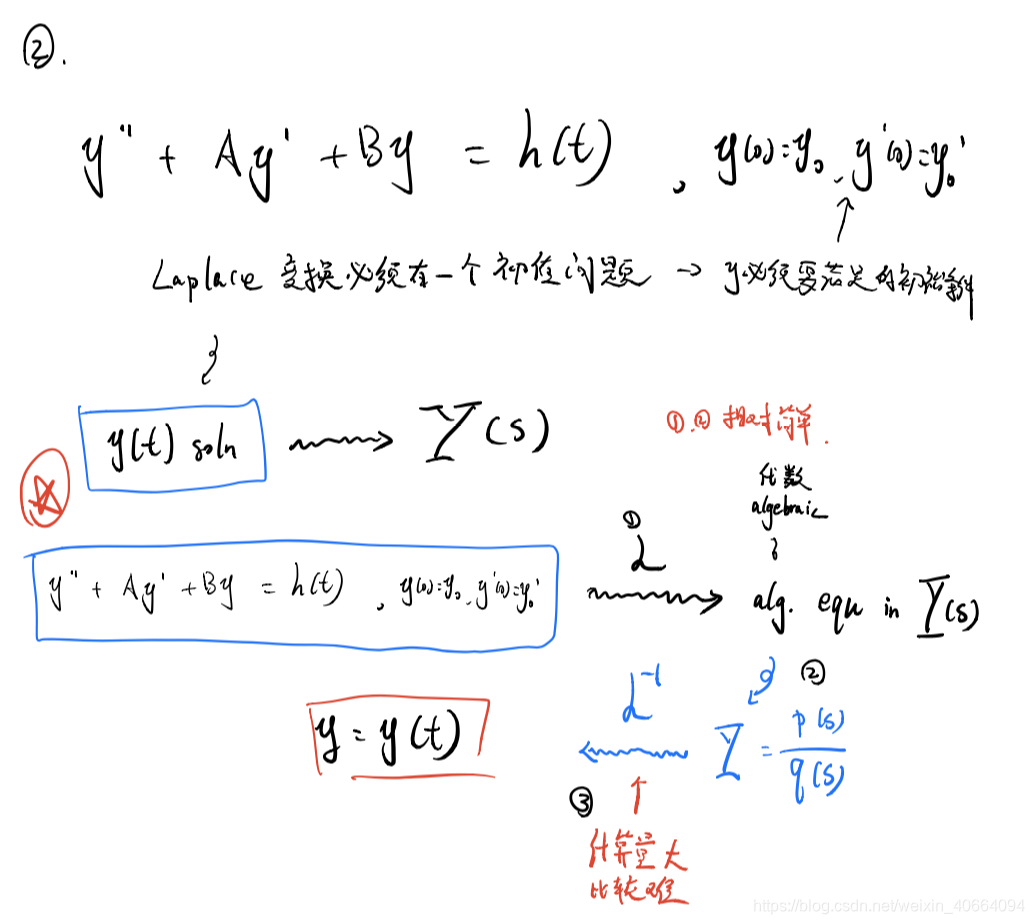 ②.
y'' + Ay' + By = h(t) , y(0)=y₀, y'(0)=y₀'
Laplace 变换必须有一个初值问题 → y必须要 的初始条件
y(t) soln → Y(s)
①,② 相对简单.
代数
algebraic
① L
y'' + Ay' + By = h(t) , y(0)=y₀, y'(0)=y₀' → alg. equ in Y(s)
②
y = y(t) L⁻¹ ← Y = p(s)/q(s)
③
计算量大
比较难
https://blog.csdn.net/weixin_40664094